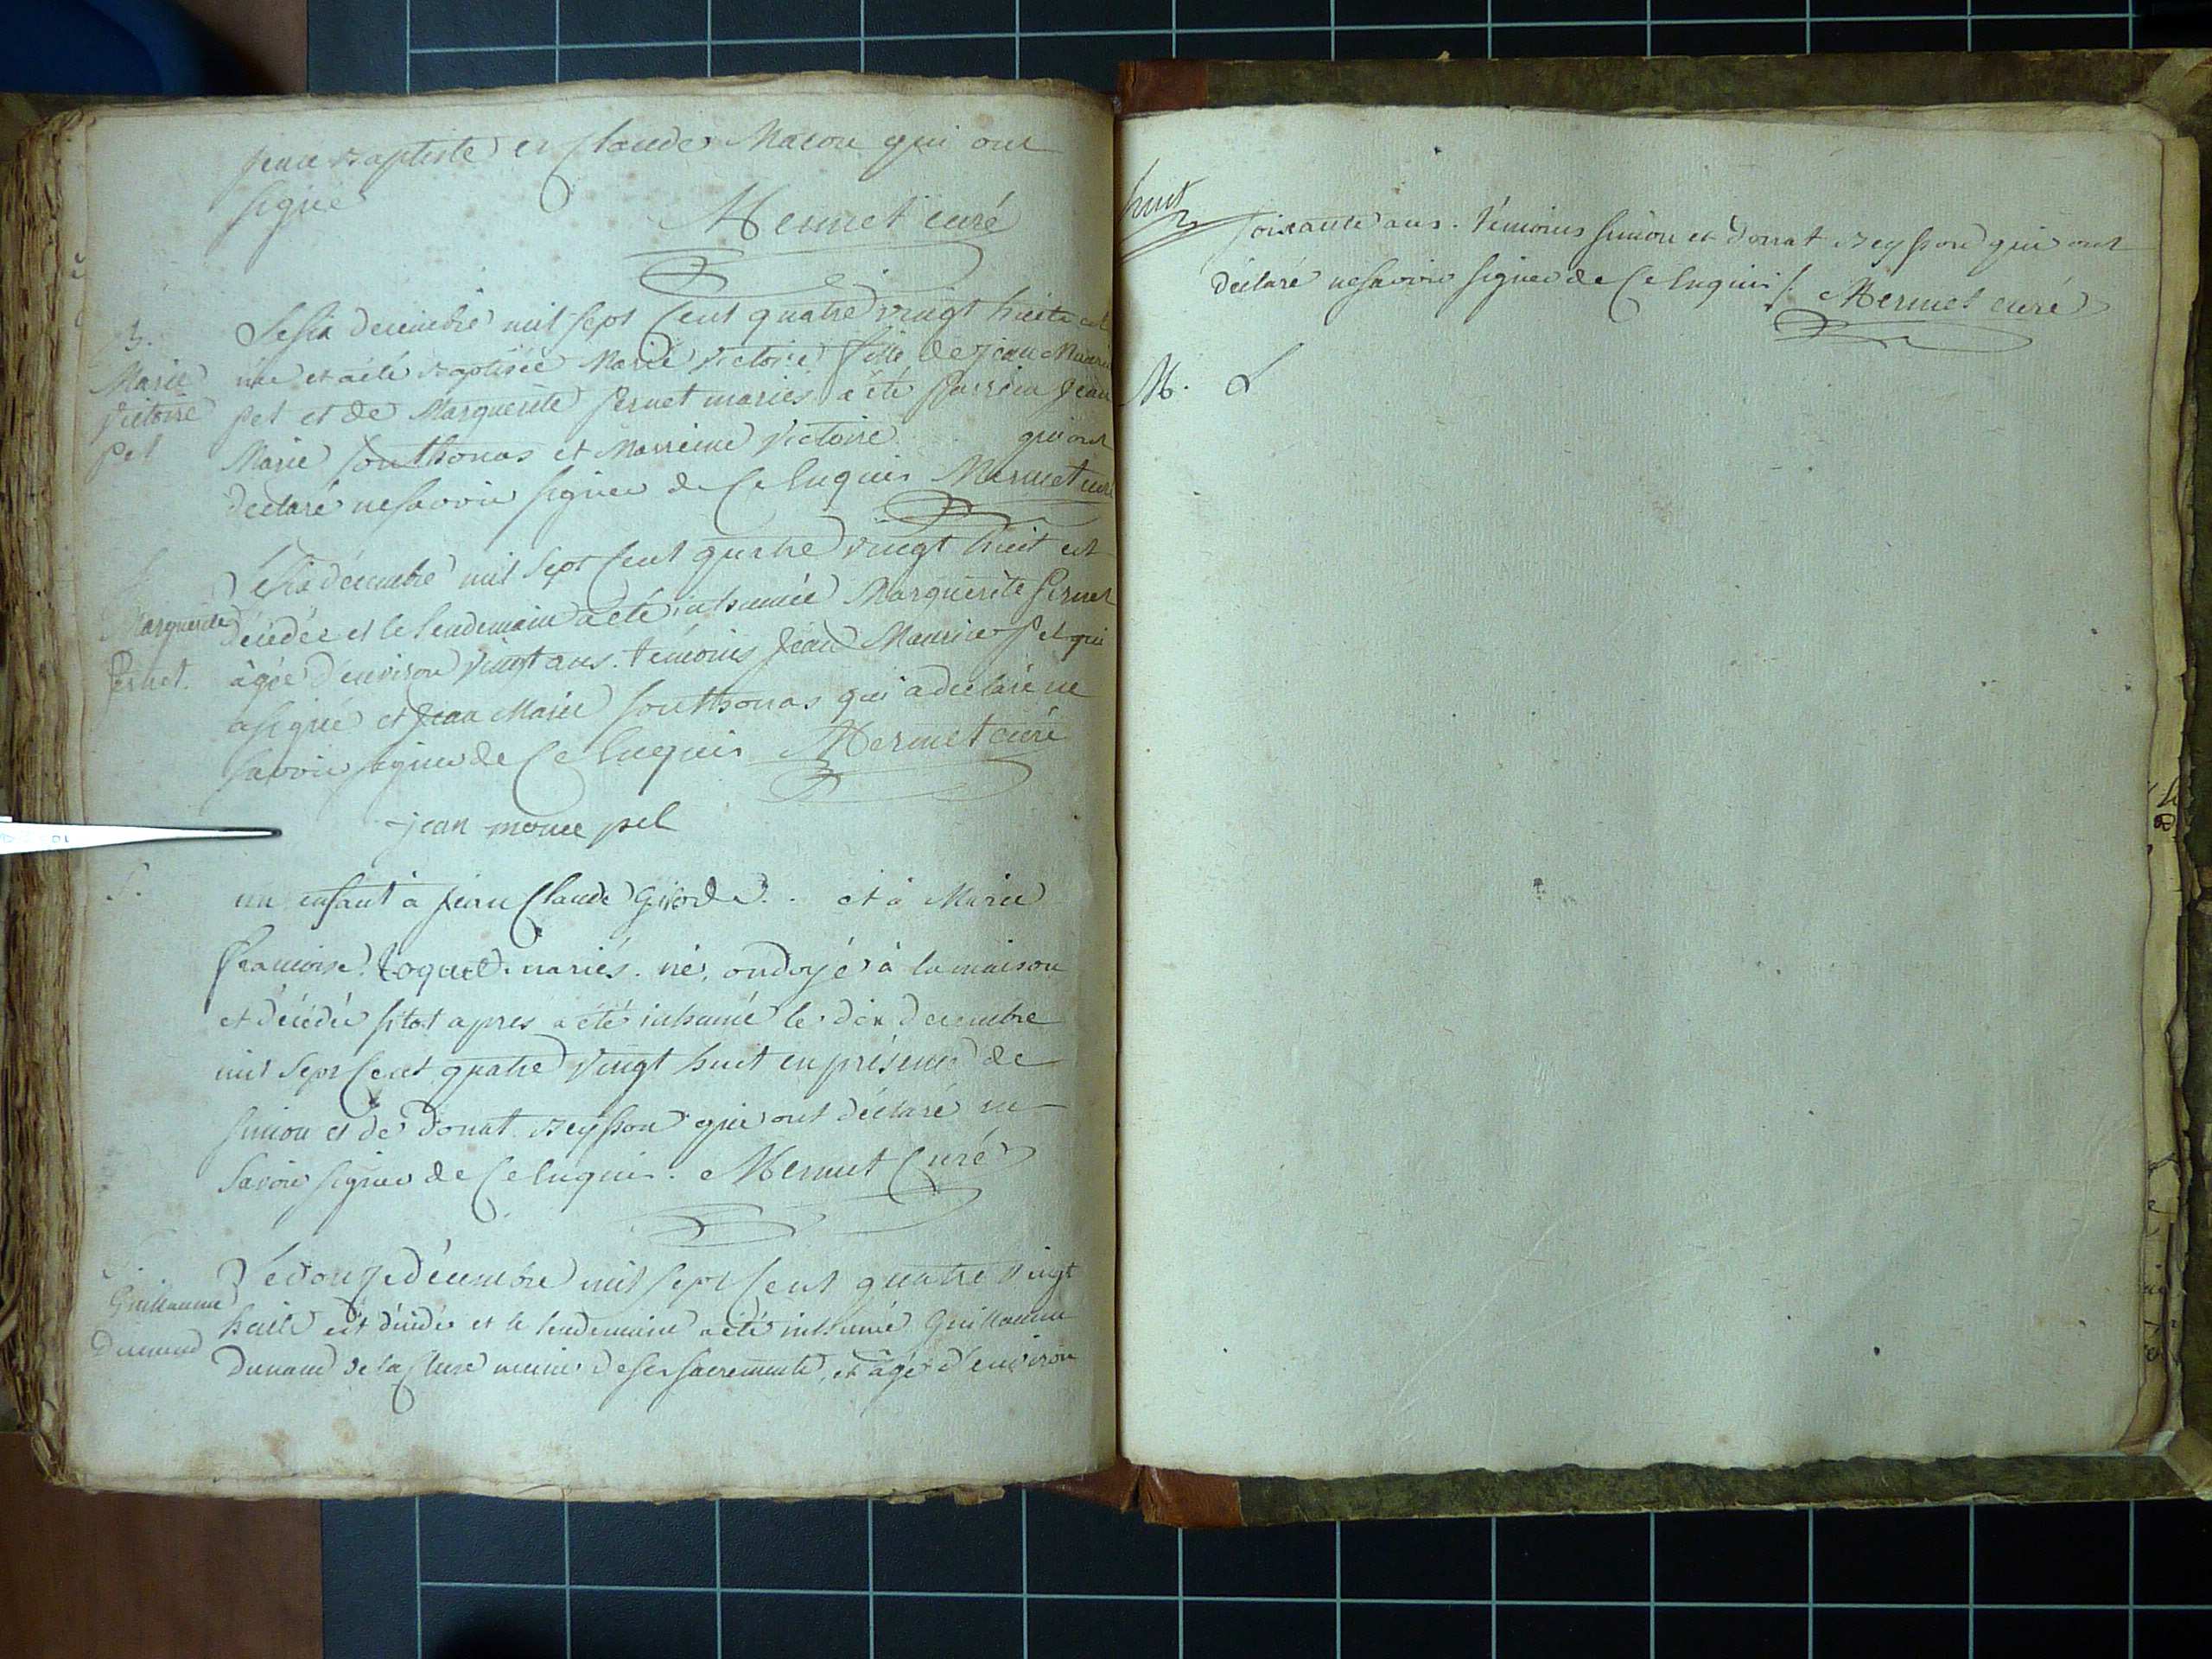 jean Baptiste et Claude Macon qui ont
signé
Mermet curé
B.
Marie
Victoire
pel
Le six decembre mil sept Cent quatre vingt huit est
née et a été Baptisée Marie Victoire fille de jean Maurice
pel et de Marguerite pernet mariés a été parrein jean
Marie Sonthonas et Marreine Victoire qui ont
declaré ne savoir signer de Ce Enquis Mermet curé
Marguerite
pernet.
Le six décembre mil Sept Cent quatre vingt huit est
décédée et le lendemain a été inhumée Marguerite pernet
âgée d'environ vingt ans. témoins jean Maurice pel qui
a signé et jean Marie Sonthonas qui a declaré ne
savoir signer de Ce Enquis Mermet curé
jean morice pel
S.
un enfant à jean Claude Girod . . et à Marie
françoise toquet mariés. né, ondoyé à la maison
et décédé sitot apres a été inhumé le dix decembre
mil Sept Cent quatre vingt huit en présence de
simon et de donat Beysson qui ont déclaré ne
savoir signer de Ce Enquis. Mermet Curé
Guillaume
Dunand
Le douze décembre mil sept Cent quatre vingt
huit est décédé et le lendemain a été inhumé Guillaume
Dunand de la Cluse muni de ses sacrements, et âgé d'environ
huit
soixante ans. témoins simon et donat Beysson qui ont
déclaré ne savoir signer de Ce Enquis /. Mermet curé
M. L